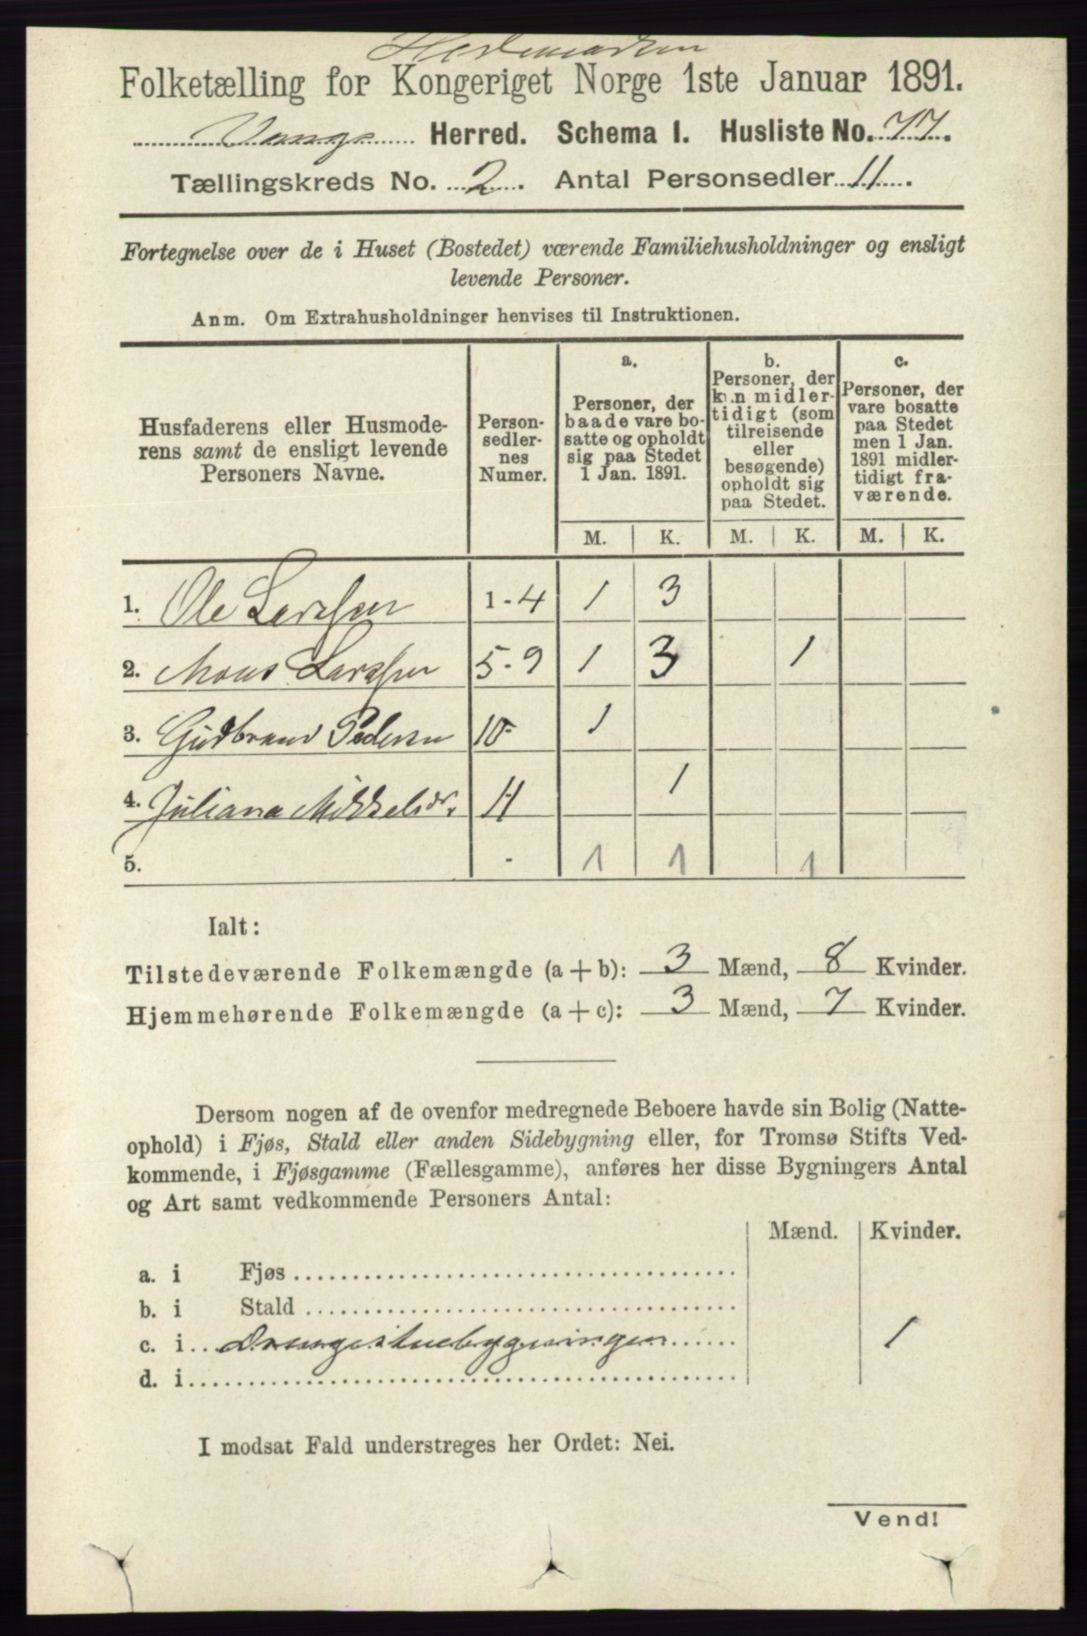 Hedemarken
Folketælling for Kongeriget Norge 1ste Januar 1891.
Vangs Herred. Schema I. Husliste No. 77.
Tællingskreds No. 2. Antal Personsedler 11.
Fortegnelse over de i Huset (Bostedet) værende Familiehusholdninger og ensligt
levende Personer.
Anm. Om Extrahusholdninger henvises til Instruktionen.
Husfaderens eller Husmode-
rens samt de ensligt levende
Personers Navne.
Person-
sedler-
nes
Numer.
a.
Personer, der
baade vare bo-
satte og opholdt
sig paa Stedet
1 Jan. 1891.
b.
Personer, der
kun midler-
tidigt (som
tilreisende
eller
besøgende)
opholdt sig
paa Stedet.
c.
Personer, der
vare bosatte
paa Stedet
men 1 Jan.
1891 midler-
tidigt fra-
værende.
M. K. M. K. M. K.
1. Ole Larssen 1-4 1 3
2. Mons Larssen 5-9 1 3 1
3. Gudbrand Pedersen 10- 1
4. Juliana Mikkelsdr. 11 1
5. - 1 1 1
Ialt:
Tilstedeværende Folkemængde (a+b): 3 Mænd, 8 Kvinder.
Hjemmehørende Folkemængde (a+c): 3 Mænd, 7 Kvinder.
Dersom nogen af de ovenfor medregnede Beboere havde sin Bolig (Natte-
ophold) i Fjøs, Stald eller anden Sidebygning eller, for Tromsø Stifts Ved-
kommende, i Fjøsgamme (Fællesgamme), anføres her disse Bygningers Antal
og Art samt vedkommende Personers Antal:
Mænd. Kvinder.
a. i Fjøs
b. i Stald
c. i Drengestuebygningen 1
d. i
I modsat Fald understreges her Ordet: Nei.
Vend!